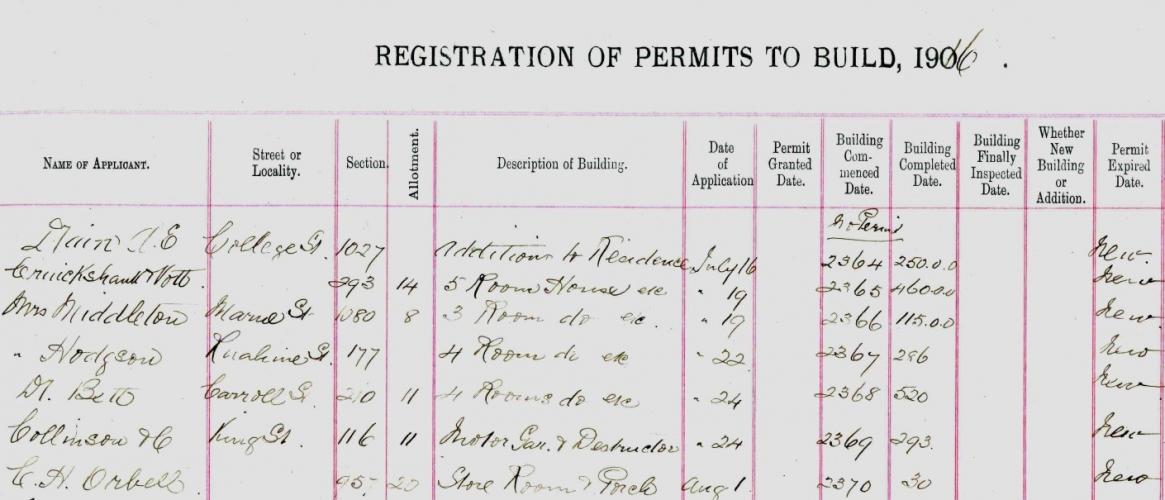 REGISTRATION OF PERMITS TO BUILD, 1916.
NAME OF APPLICANT. Street or Locality. Section. Allotment. Description of Building. Date of Application Permit Granted Date. Building Com-menced Date. Building Completed Date. Building Finally Inspected Date. Whether New Building or Addition. Permit Expired Date.
No Permit
College St. 1027 Additions to Residence July 16 2364 250.0.0 New
293 14 5 Room House etc " 19 2365 460.0.0 New
Mrs Middleton Marne St 1080 8 3 Room do etc. " 19 2366 115.0.0 New
" Hodgson Ruahine St. 177 4 Room do etc " 22 2367 286 New
Dr. Bett Carroll St. 210 11 4 Rooms do etc " 24 2368 520 New
Collinson & C King St. 116 11 Motor Gar. & Destructor " 24 2369 293. New
C. H. Orbell 957 20 Store Room & Porch Aug 1 2370 30 New